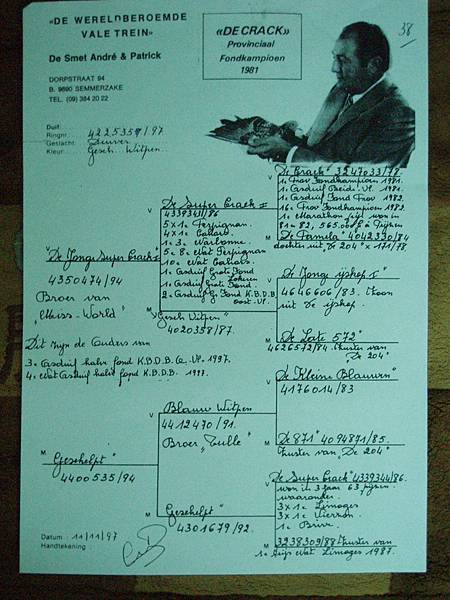 38
«DE WERELDBEROEMDE
VALE TREIN»
De Smet André & Patrick
DORPSTRAAT 94
B. 9890 SEMMERZAKE
TEL. (09) 384 20 22
«DE CRACK»
Provinciaal
Fondkampioen
1981
Duif:
Ringnr. 4225357/97
Geslacht: Duiver
Kleur: Gesch. Witpen
V
De Jonge Super Crack
4350474/94
Broer van
„Miss-World"
Dit zijn de Ouders van
3e Asduif halve fond K.B.D.B. O. Vl. 1997.
4e Nat Asduif halve fond K.B.D.B. 1997.
V
De Super Crack II
4339341/86
5 x 1e Perpignan
4 x 1e Cahors
1e 3e Narbonne
5e 8e Nat Perpignan
10e Nat Cahors
1e Asduif Grote Fond
Lokeren
1e Asduif Grote Fond
2e Asduif G. Fond K.B.D.B.
Oost-Vl.
M
Gesch Witpen"
4020358/87.
V
De Crack" 3247033/78
1e Prov Fondkampioen 1981.
1e Asduif Beide-Vl. 1981.
1e Asduif Fond Prov 1982.
16e Prov Fondkampioen 1982.
1e Marathon
81 - 82, 565.000 Fr Prijzen
M
De Pamela" 4042330/84
dochter uit De 204" x 111/78.
V
De Jonge ijshef I"
4646606/83. Zoon
uit De ijshef.
M
De Late 572"
4626572/84 Zuster van
De 204"
M
Geschelpt"
4400535/94
V
Blauw Witpen
4412470/91.
Broer „Tulle"
M
Geschelpt"
4301679/92.
V
De Kleine Blauwen"
4176014/83
M
De 871" 4094871/85.
Zuster van De 204"
V
De Super Crack" 4339344/86.
won in 3 jaar 63 prijzen
waaronder
3 x 1e Limoges
3 x 1e Vierzon
1e Brive.
M
3238309/88 Zuster van
1e Nat Limoges 1987.
Datum: 11/11/97
Handtekening: